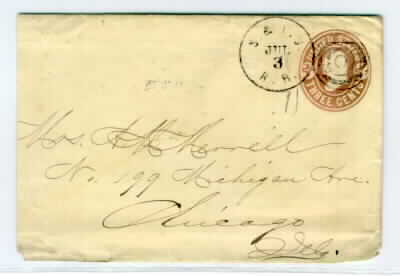 JUL
3
R.R.
THREE CENTS
Mrs. H Merrell
No. 199 Michigan Ave.
Chicago
Ills.